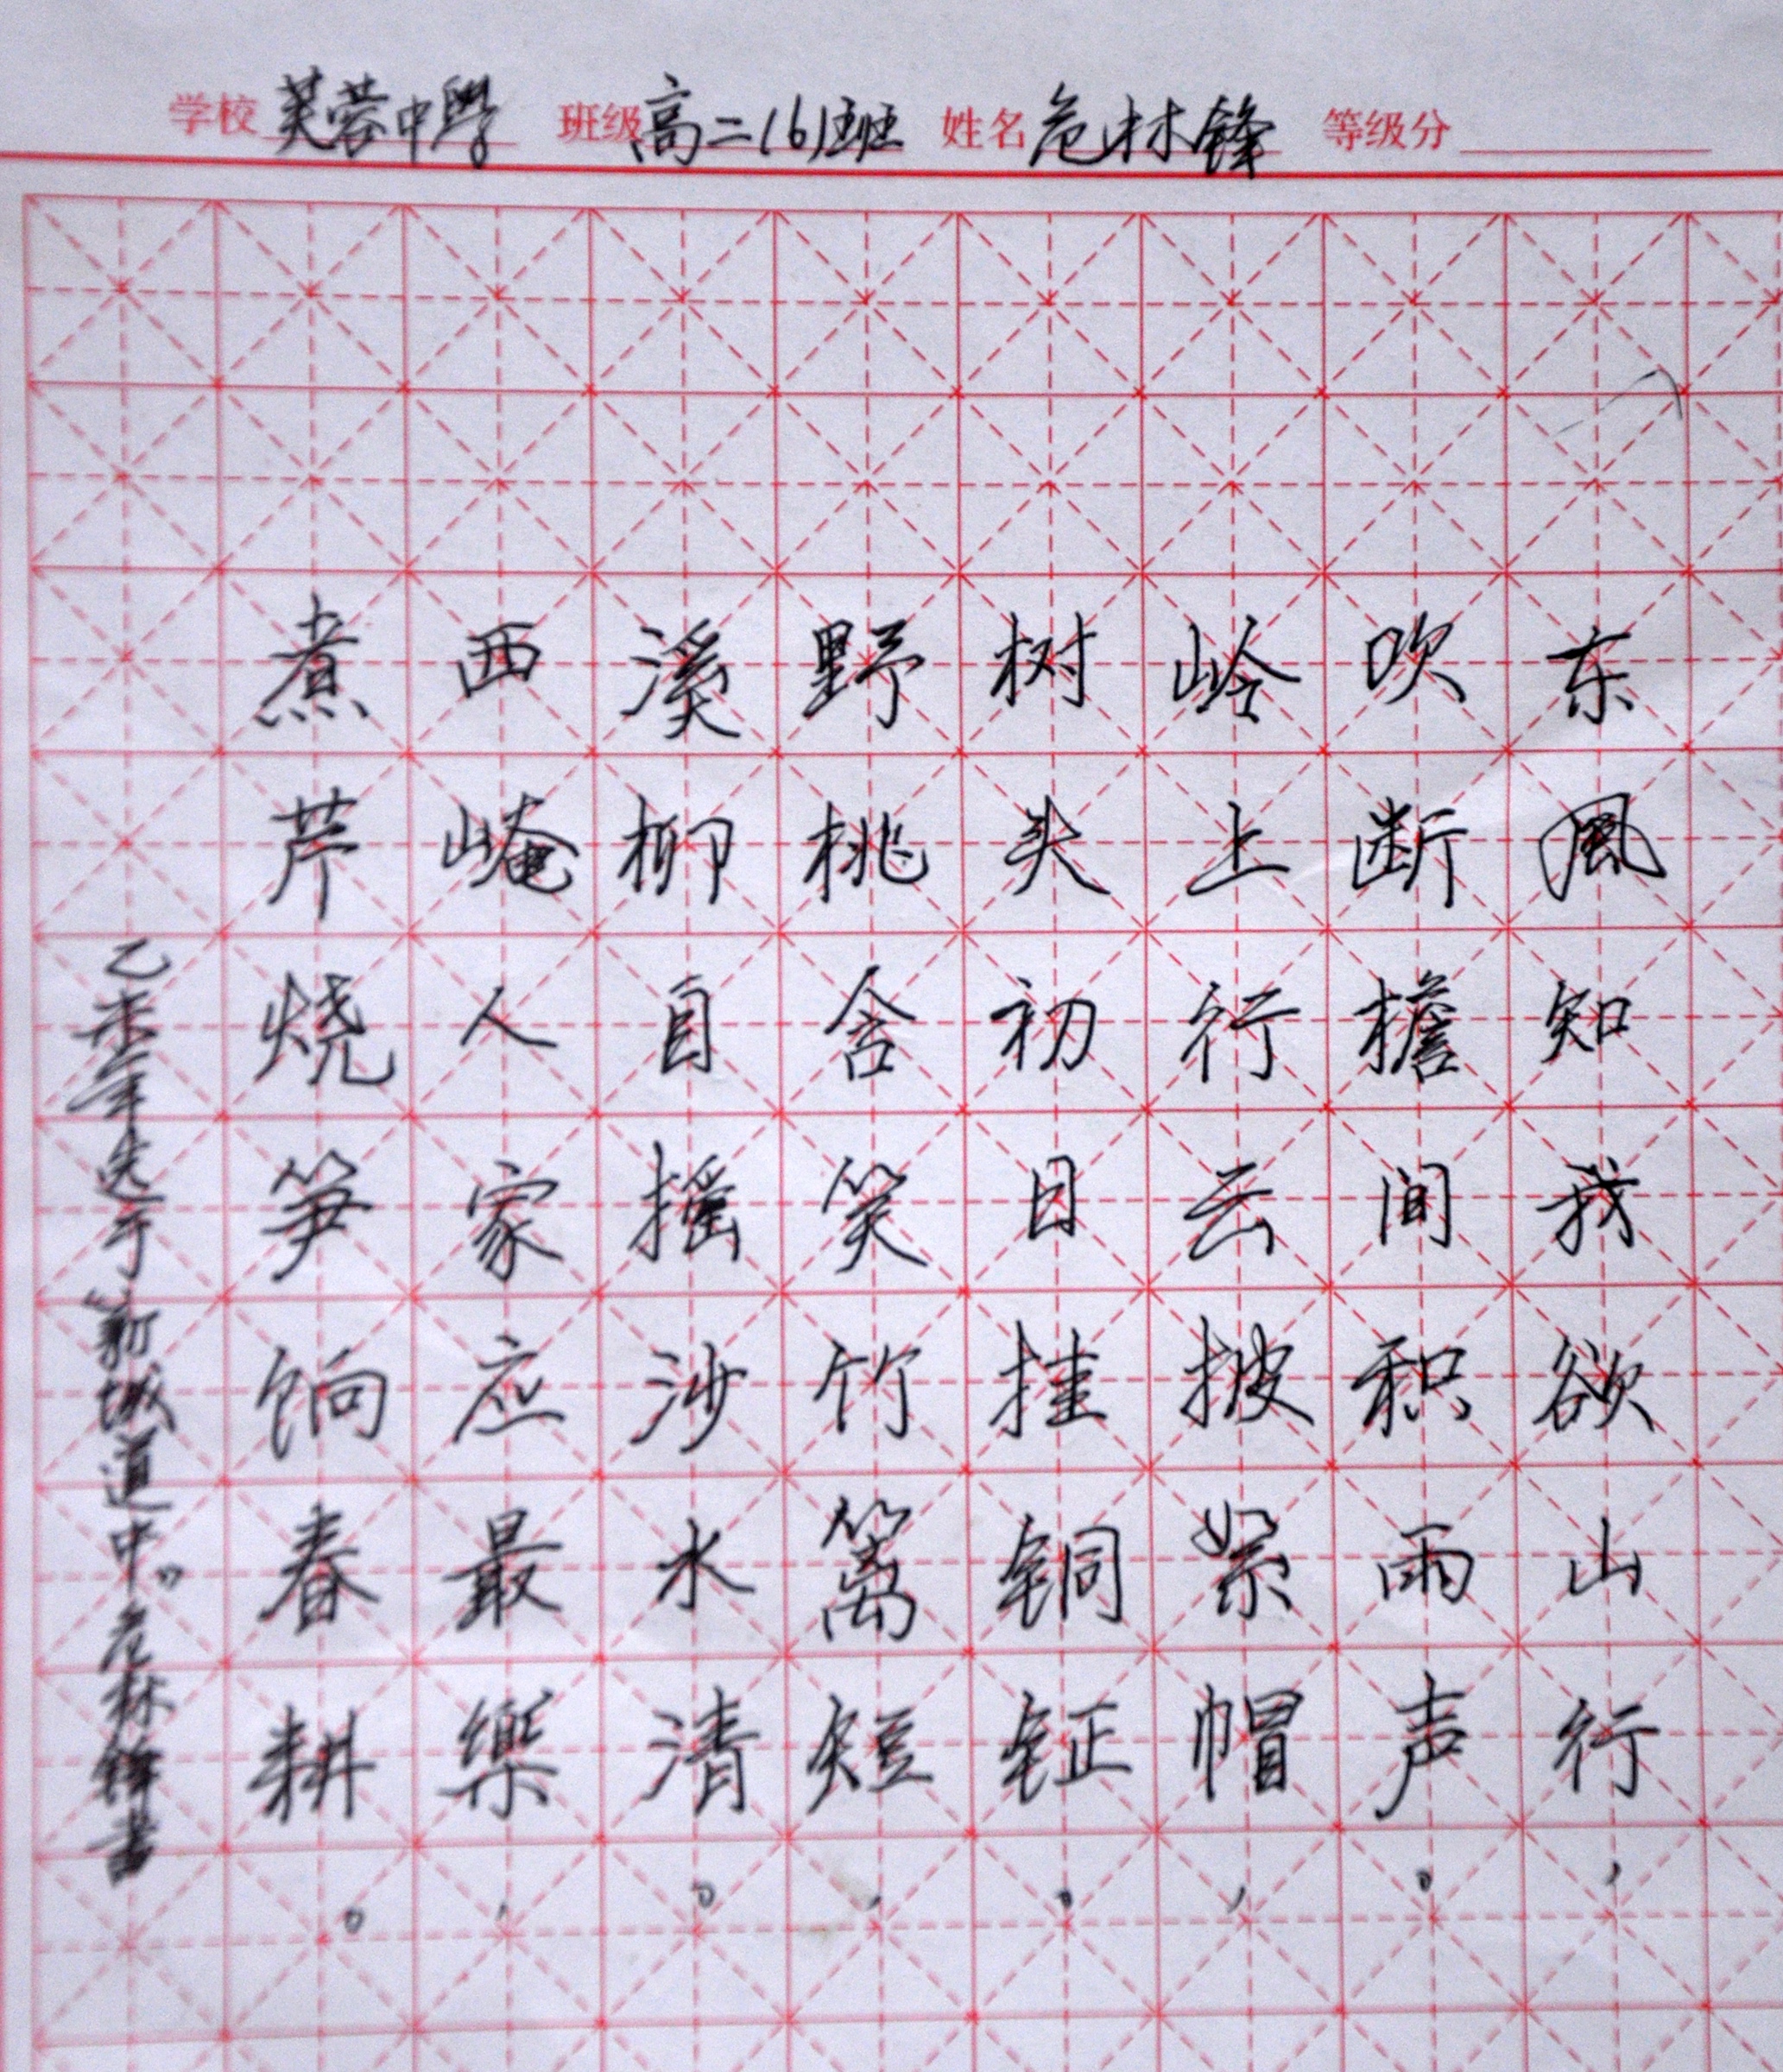 学校 芙蓉中學 班级 高二(6)班 姓名 危林锋 等级分
东風知我欲山行，
吹断檐间积雨声。
岭上行云披絮帽，
树头初日挂铜钲。
野桃含笑竹篱短，
溪柳自摇沙水清。
西崦人家应最樂，
煮芹烧笋饷春耕。
乙未年选于“新城道中”危林锋书